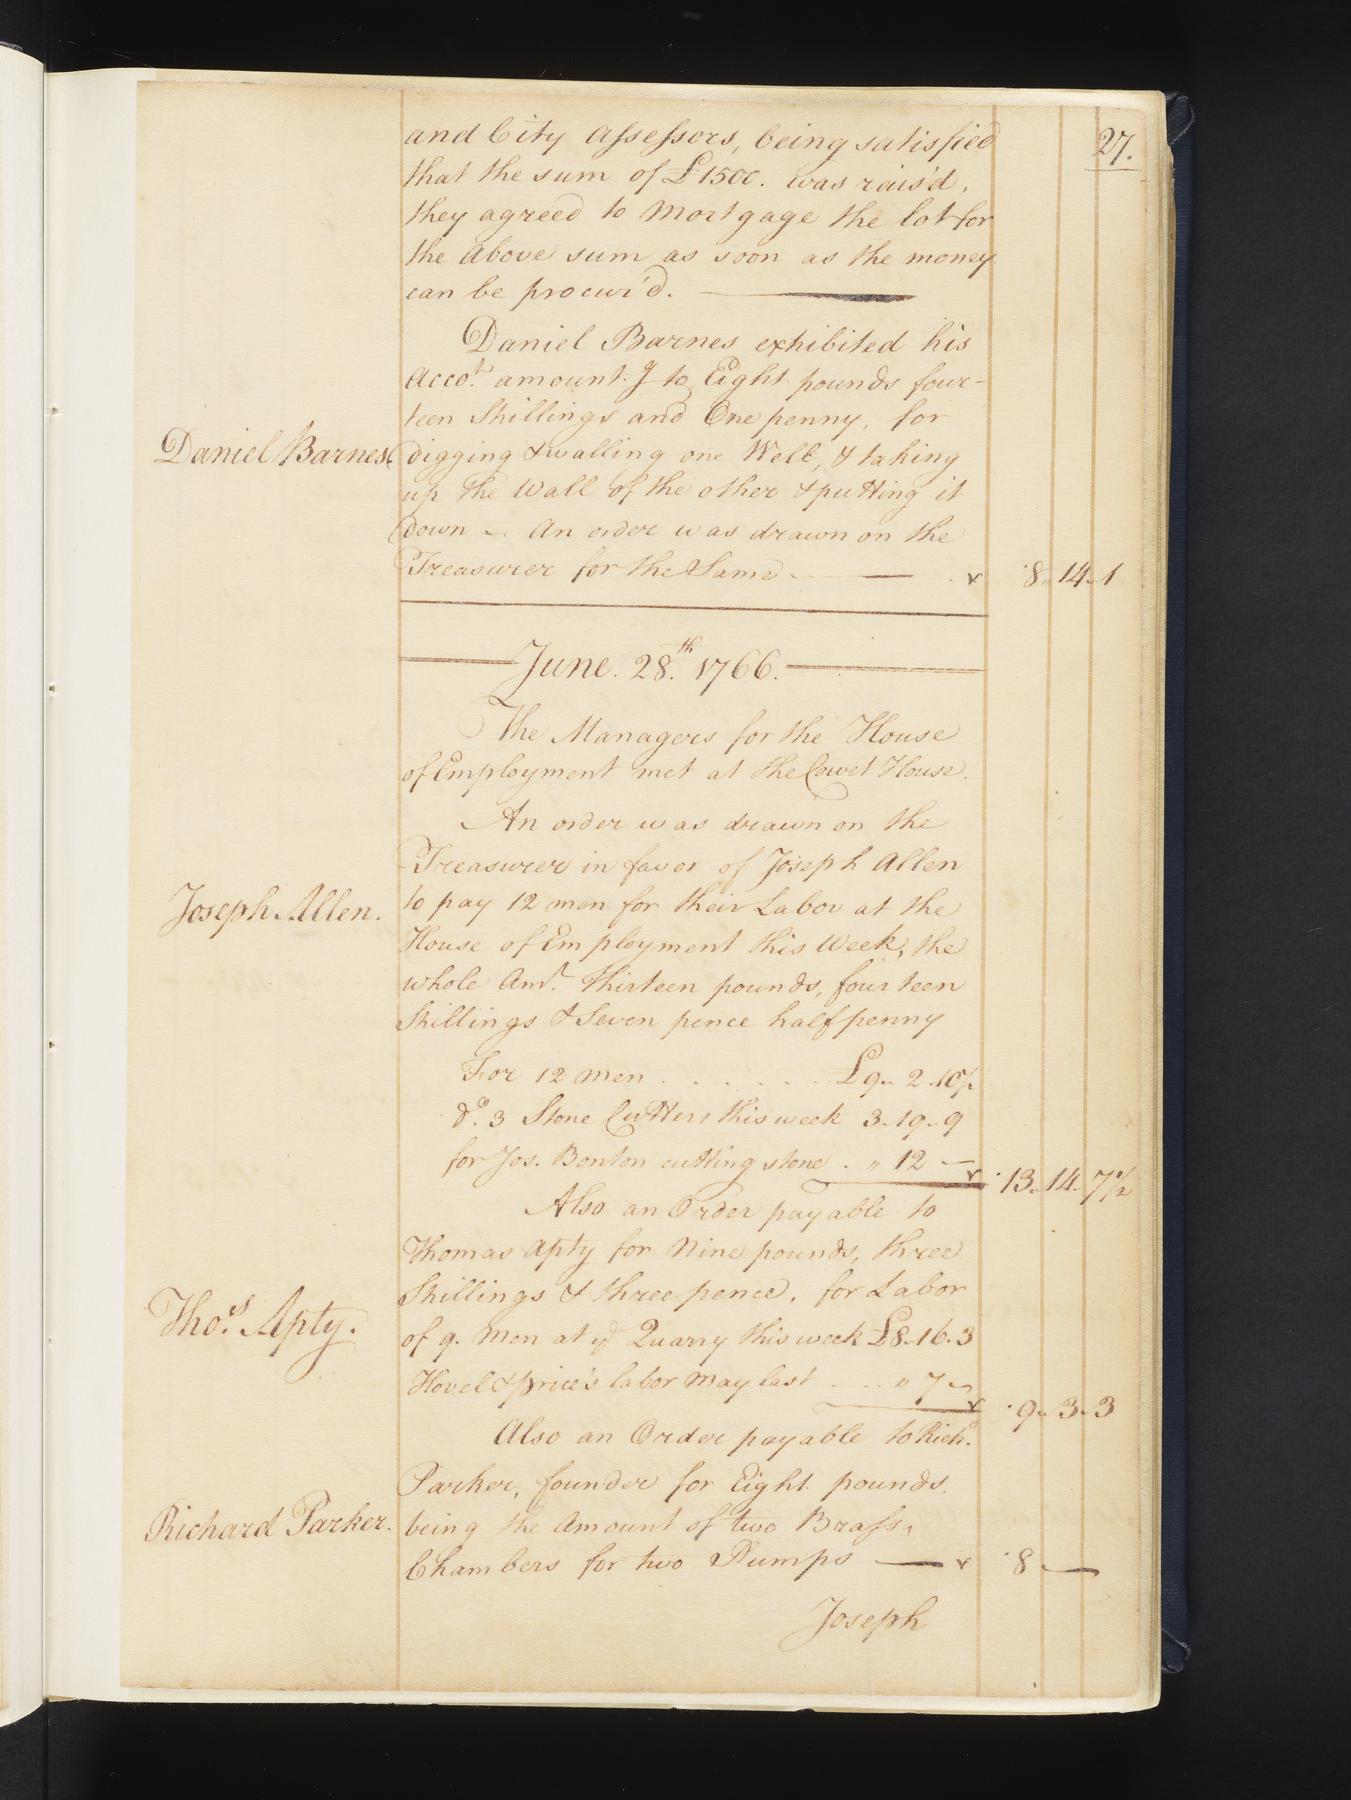 27.
and City Assessors, being satisfied
that the sum of £1500. was rais'd,
they agreed to Mortgage the lot for
the above sum as soon as the money
can be procur'd.
Daniel Barnes exhibited his
Acco.t amount.g to Eight pounds four-
teen Shillings and One penny, for
Daniel Barnes digging & walling one Well, & taking
up the Wall of the other & putting it
down - An order was drawn on the
Treasurer for the Same 8 . 14 . 1
June. 28.th 1766.
The Managers for the House
of Employment met at the Court House.
An order was drawn on the
Treasurer in favor of Joseph Allen
Joseph Allen. to pay 12 men for their Labor at the
House of Employment this Week, the
whole Am.t thirteen pounds, fourteen
Shillings & Seven pence halfpenny
For 12 men . . . . . . £9 .. 2 . 10½
d.o 3 Stone Cutters this week 3 . 19 . 9
for Jos. Bonton cutting stone . " 12 — 13 . 14 . 7½
Also an Order payable to
Thomas Apty for Nine pounds, three
Shillings & three pence, for Labor
Tho.s Apty. of 9. Men at ye Quarry this week £8 . 16 . 3
Hovel & price's labor May last . . . " 7 — 9 . 3 . 3
Also an Order payable to Rich.d
Parker, founder for Eight pounds.
Richard Parker. being the Amount of two Brass,
Chambers for two Pumps — 8 —
Joseph